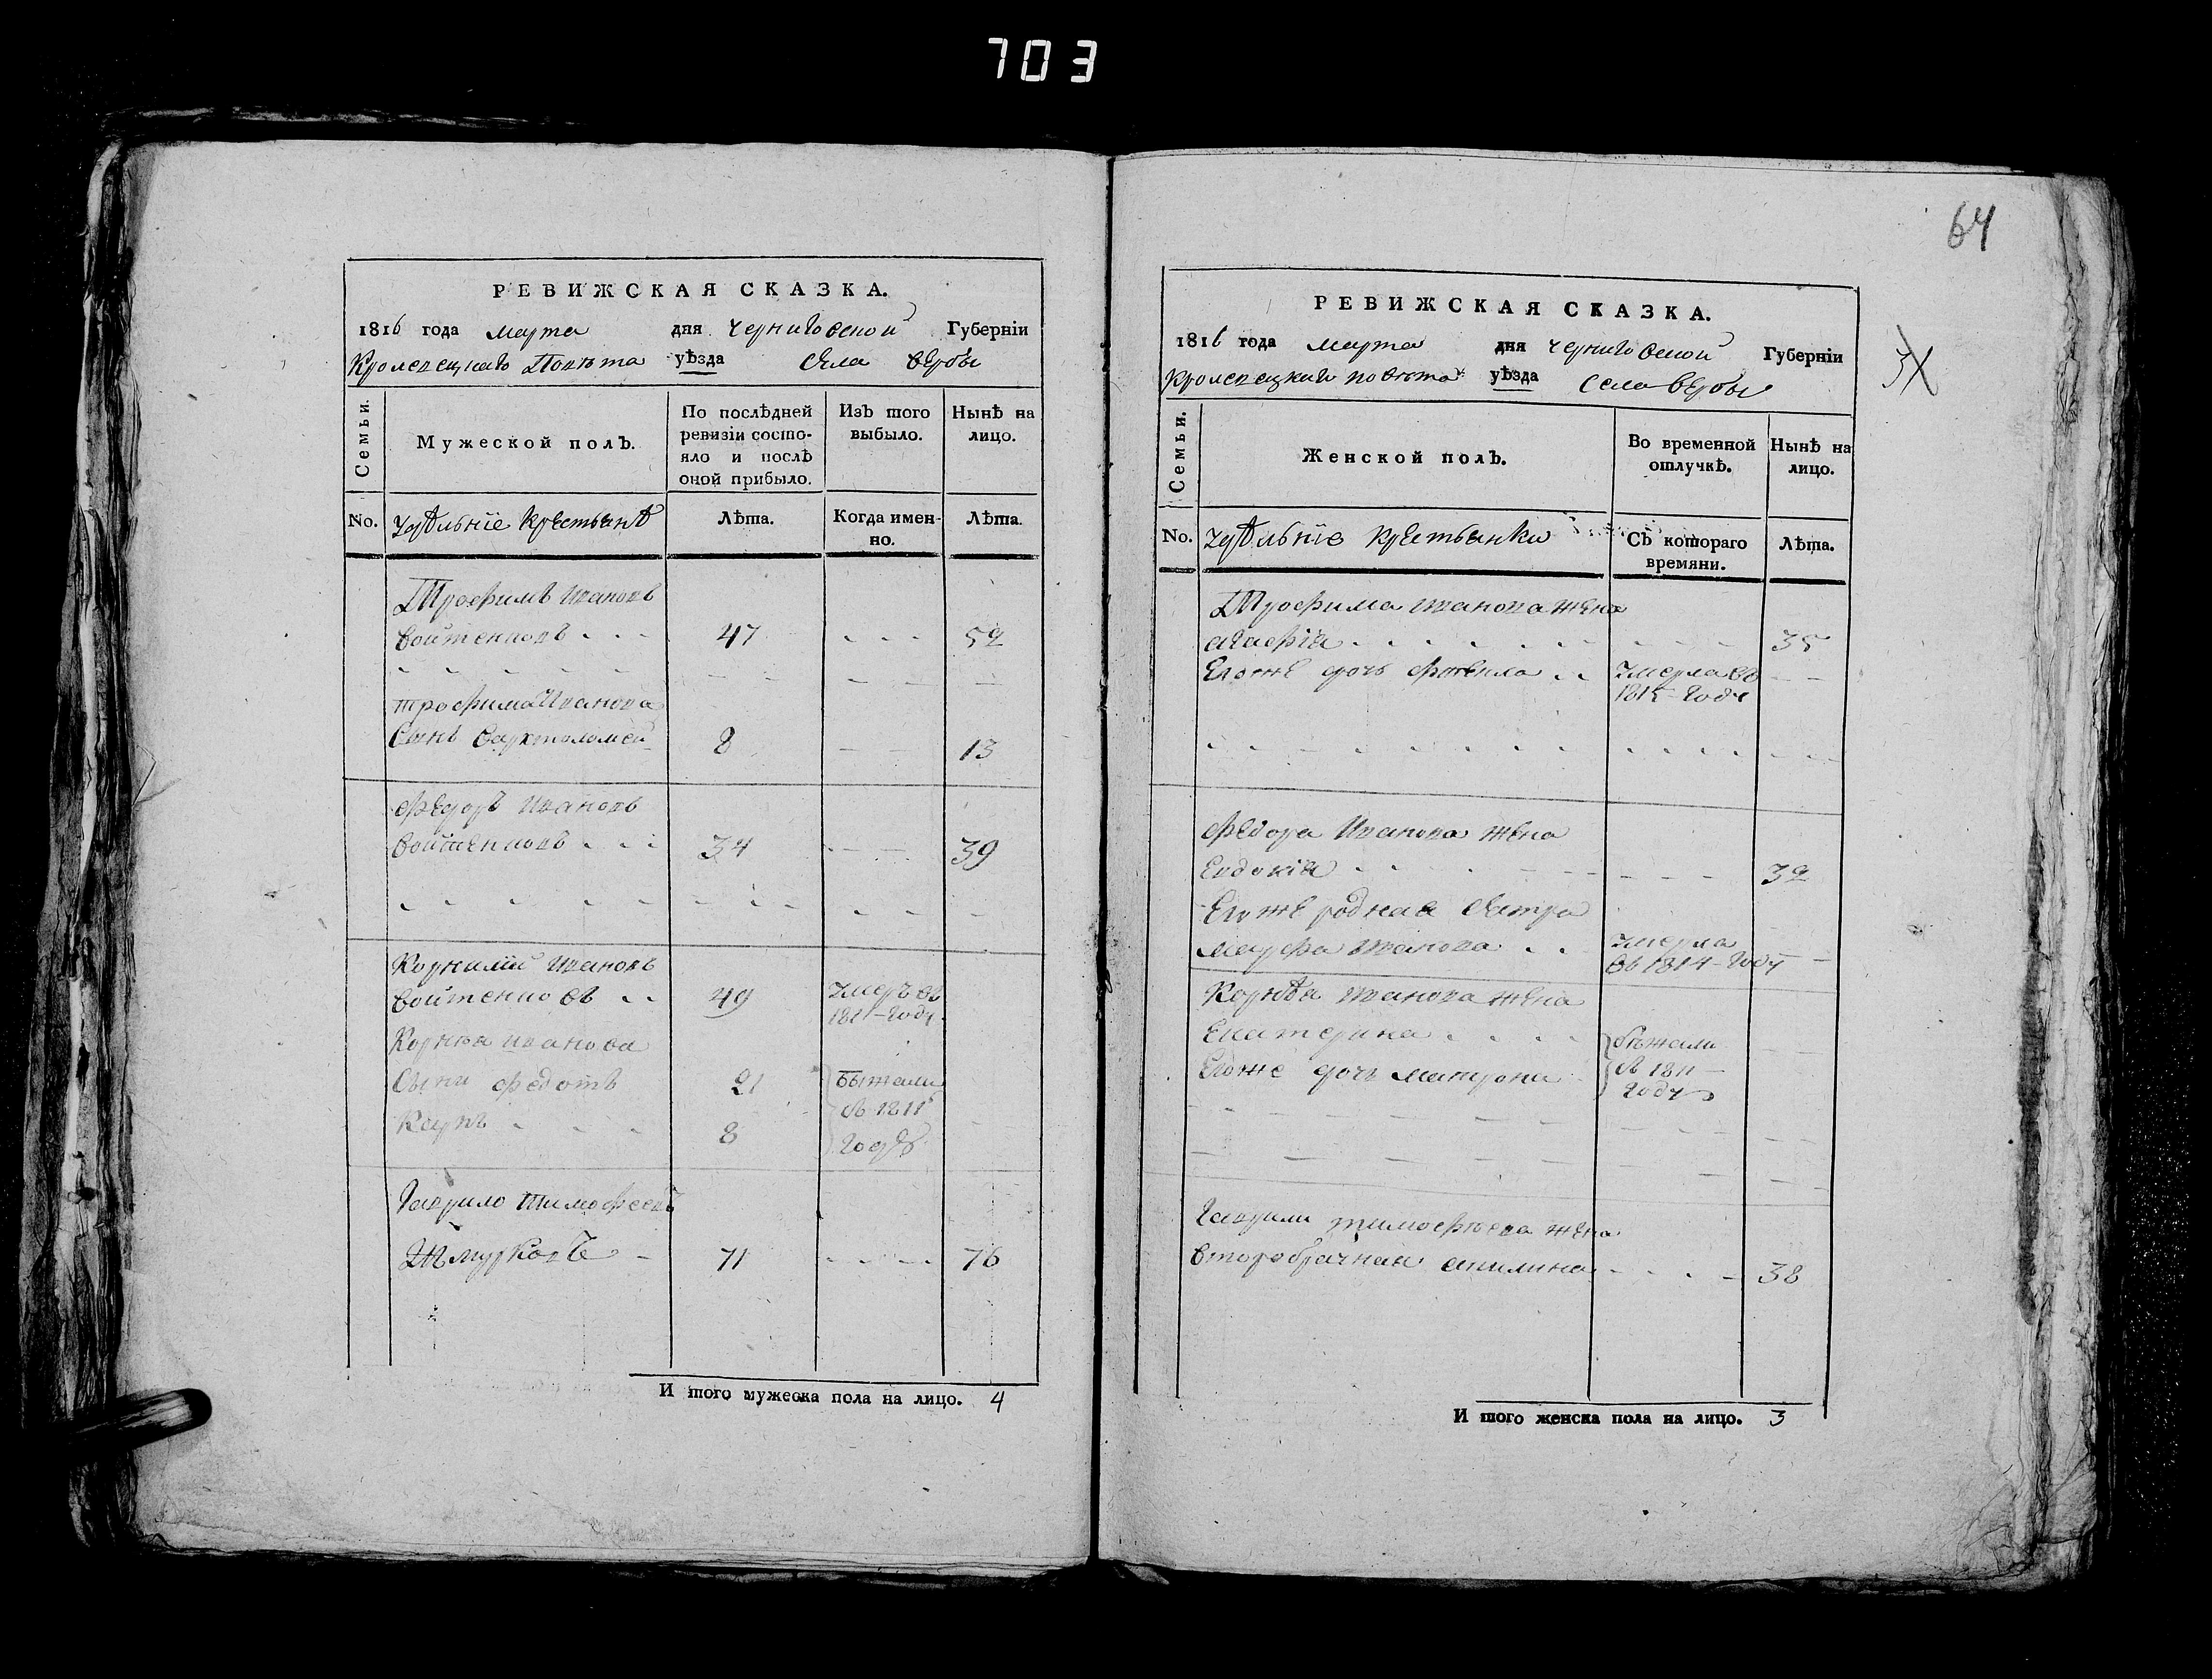 703
РЕВИЖСКАЯ СКАЗКА.
1816 года марта дня Черниговской Губерніи
Кролевецкаго Повѣта уѣзда Села Вербы
Семьи. Мужеской полъ. По послѣдней ревизіи состояло и послѣ оной прибыло. Изъ того выбыло. Нынѣ на лицо.
No. Удѣльніе крестьянѣ Лѣта. Когда именно. Лѣта.
Трофимъ Ивановъ
Войтенковъ 47 52
Трофима Иванова
Сынъ Варфоломей 8 13
Федоръ Ивановъ
Войтенковъ 34 39
Корнилій Ивановъ
Войтенковъ 49 умеръ въ
1811 году
Корнѣя Иванова
Сыни Федотъ 21 Бѣжали
въ 1811
Карпъ 8 годѣ
Гаврило Тимофеевъ
Шмурковъ 71 76
И того мужеска пола на лицо. 4
64
РЕВИЖСКАЯ СКАЗКА.
1816 года марта дня Черниговской Губерніи
Кролевецкаго повѣта уѣзда Села Вербы
Семьи. Женской полъ. Во временной отлучкѣ. Нынѣ на лицо.
No. Удѣльніе крестьянки Съ котораго времяни. Лѣта.
Трофима Иванова жена
Агафія 35
Егоже дочь умерла въ
1815 году
Федора Иванова жена
Евдокія 32
Егоже родная сестра
Марфа Иванова умерла
въ 1814 году
Корнѣя Иванова жена
Екатерина бѣжали
Егоже дочь Матрона въ 1811
году
Гаврили Тимофѣева жена
второбрачная Акилина 38
И того женска пола на лицо. 3